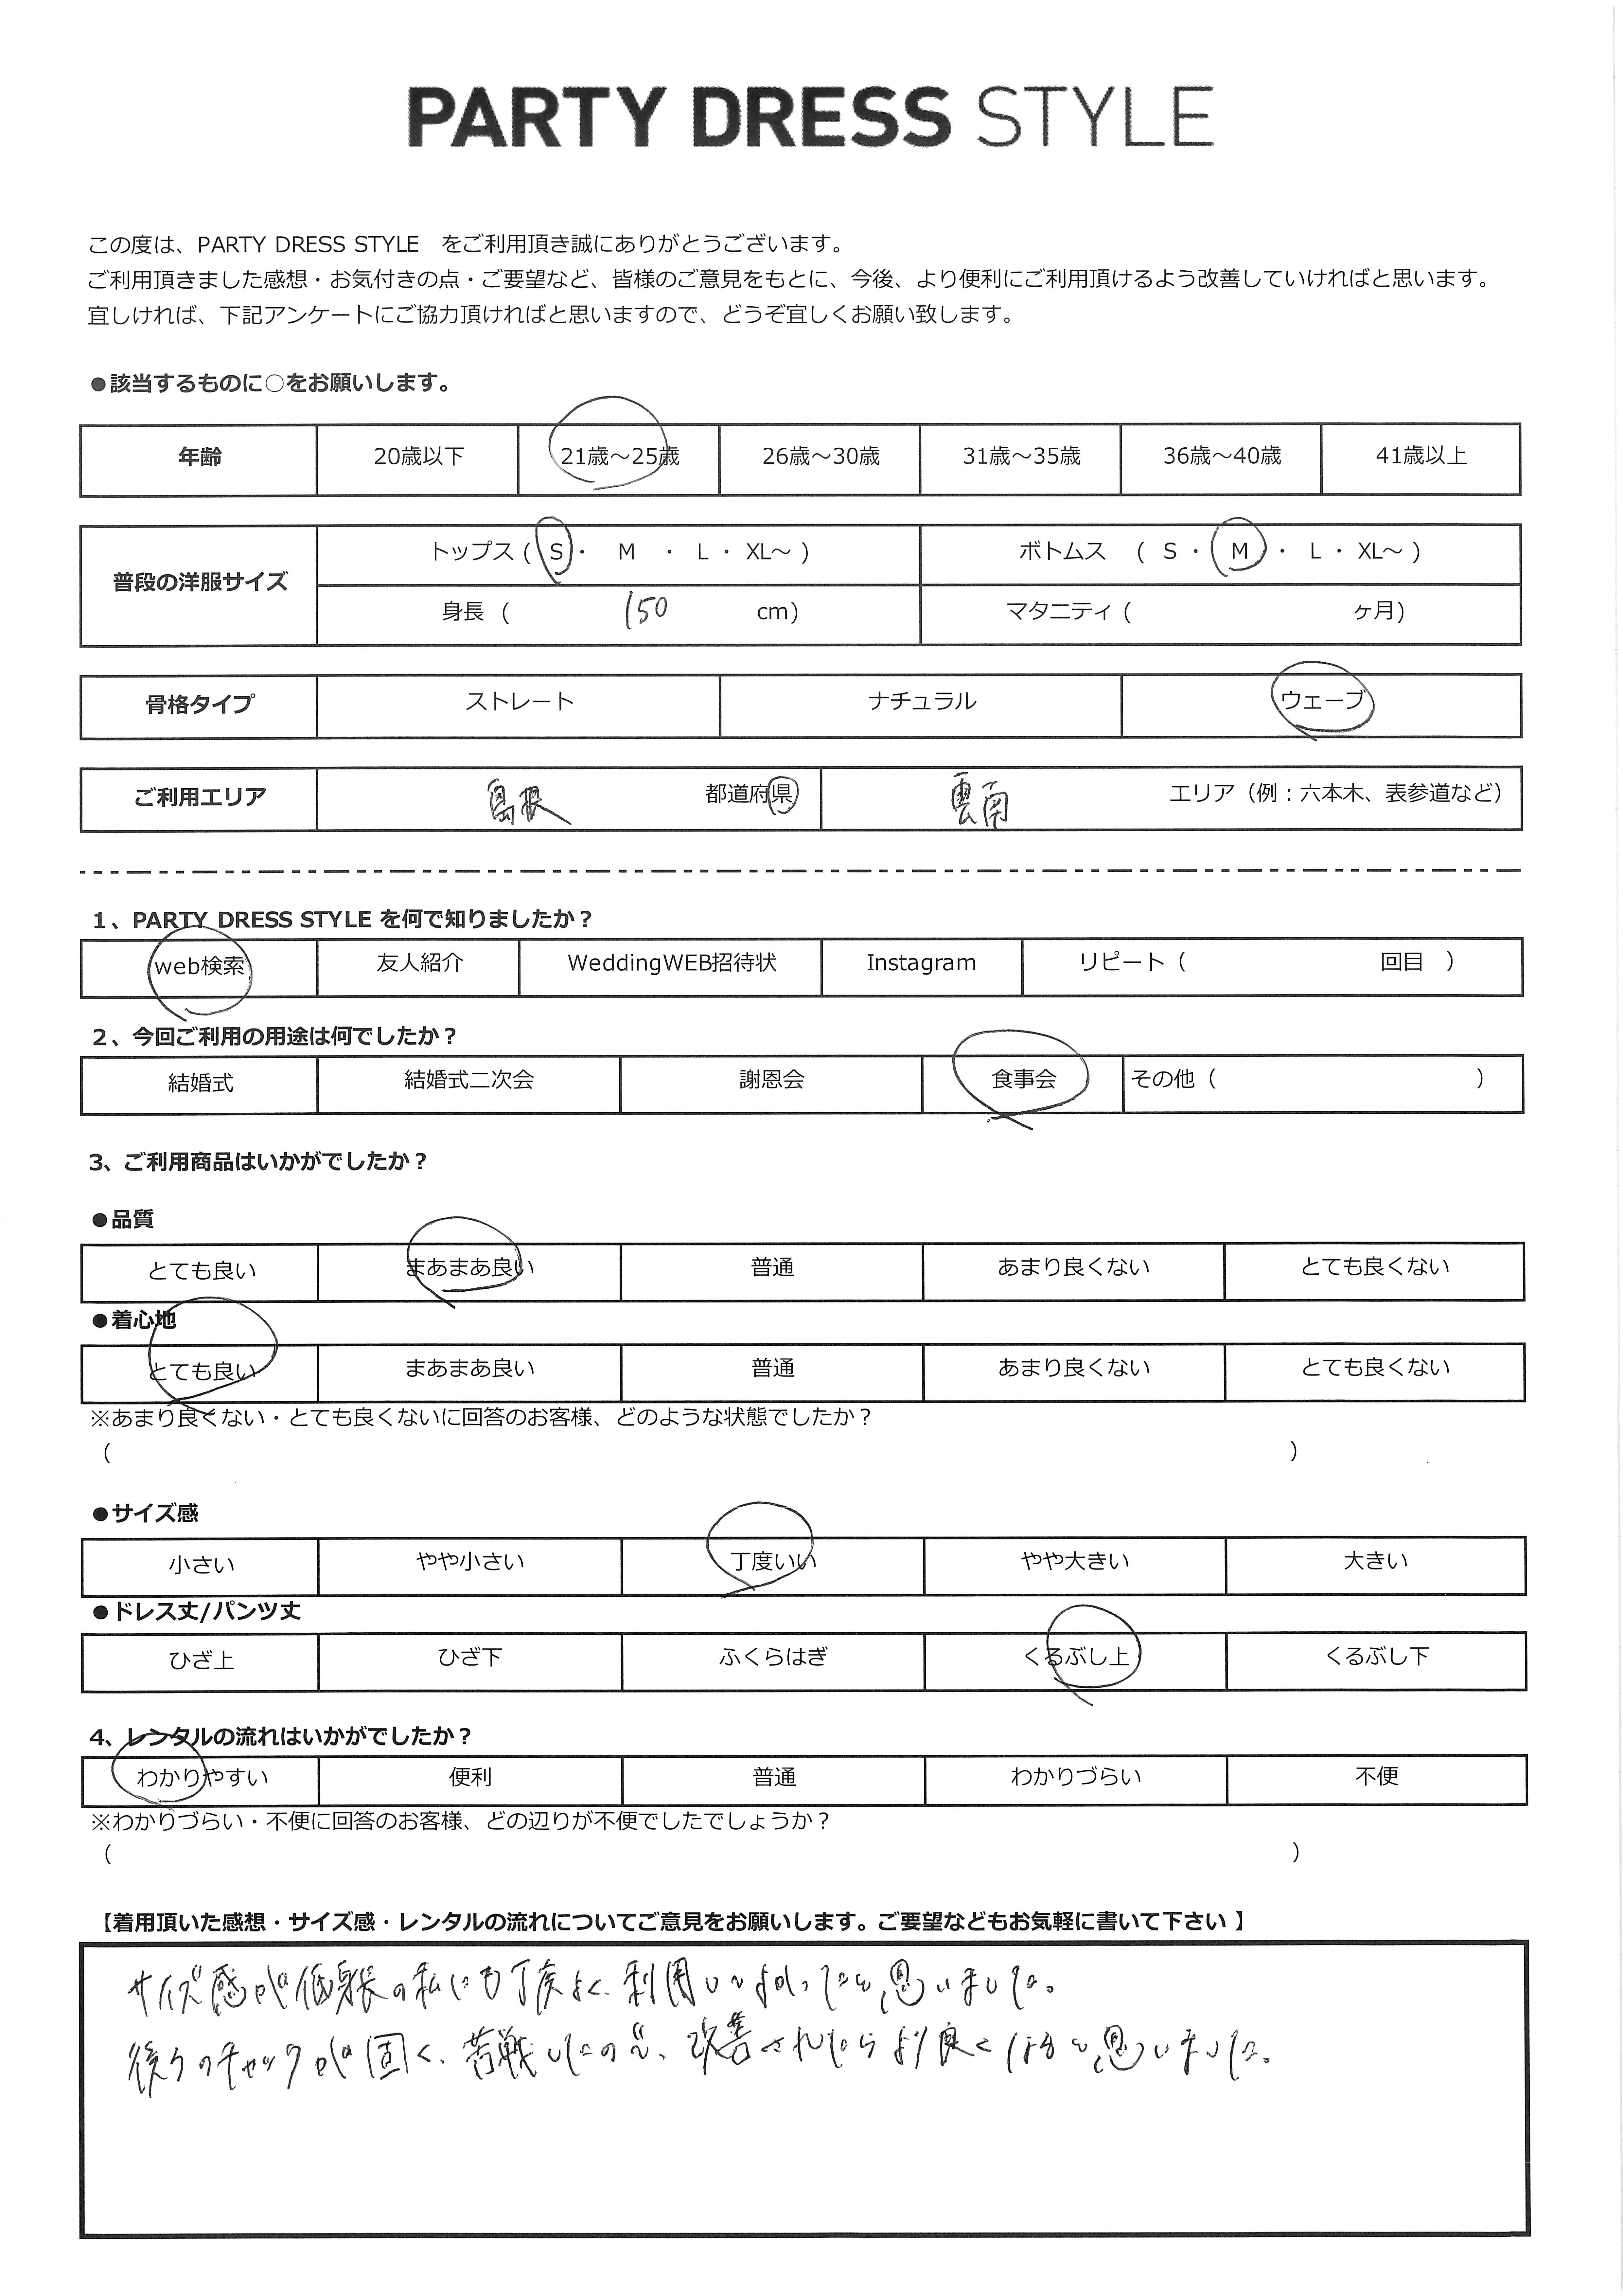 PARTY DRESS STYLE
この度は、PARTY DRESS STYLE　をご利用頂き誠にありがとうございます。
ご利用頂きました感想・お気付きの点・ご要望など、皆様のご意見をもとに、今後、より便利にご利用頂けるよう改善していければと思います。
宜しければ、下記アンケートにご協力頂ければと思いますので、どうぞ宜しくお願い致します。
●該当するものに○をお願いします。
年齢 20歳以下 21歳～25歳 26歳～30歳 31歳～35歳 36歳～40歳 41歳以上
普段の洋服サイズ トップス ( S ・ M ・ L ・ XL～ ) ボトムス ( S ・ M ・ L ・ XL～ )
身長 ( 150 cm) マタニティ ( ヶ月)
骨格タイプ ストレート ナチュラル ウェーブ
ご利用エリア 島根 都道府県 雲南 エリア（例：六本木、表参道など）
1、PARTY DRESS STYLE を何で知りましたか？
web検索 友人紹介 WeddingWEB招待状 Instagram リピート（ 回目 ）
2、今回ご利用の用途は何でしたか？
結婚式 結婚式二次会 謝恩会 食事会 その他（ ）
3、ご利用商品はいかがでしたか？
●品質
とても良い まあまあ良い 普通 あまり良くない とても良くない
●着心地
とても良い まあまあ良い 普通 あまり良くない とても良くない
※あまり良くない・とても良くないに回答のお客様、どのような状態でしたか？
（ ）
●サイズ感
小さい やや小さい 丁度いい やや大きい 大きい
●ドレス丈/パンツ丈
ひざ上 ひざ下 ふくらはぎ くるぶし上 くるぶし下
4、レンタルの流れはいかがでしたか？
わかりやすい 便利 普通 わかりづらい 不便
※わかりづらい・不便に回答のお客様、どの辺りが不便でしたでしょうか？
（ ）
【着用頂いた感想・サイズ感・レンタルの流れについてご意見をお願いします。ご要望などもお気軽に書いて下さい 】
サイズ感が低身長の私にも丁度よく、利用してよかったなと思いました。
後ろのチャックが固く、苦戦したので、改善されたらより良くなると思いました。